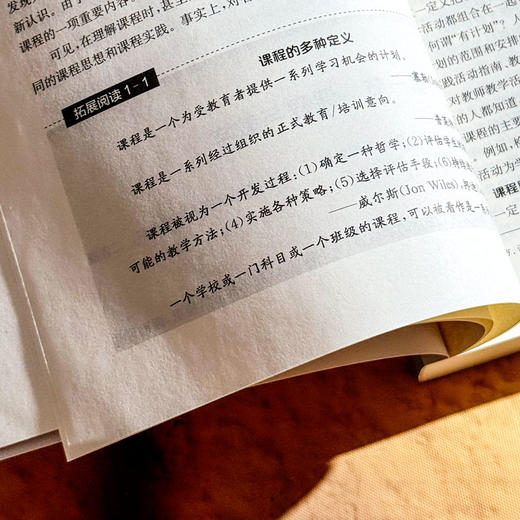 新认识。由于
课程的一项重要内容
可见,在理解课程时,甚至
同的课程思想和课程实践。事实上,对
拓展阅读1-1
课程的多种定义
课程是一个为受教育者提供一系列学习机会的计划。
课程是一系列经过组织的正式教育/培训意向。
课程被视为一个开发过程:(1)确定一种哲学;(2)评估学生
可能的教学方法;(4)实施各种策略;(5)选择评估手段;(6)
——威尔斯(Jon Wiles)
一个学校或一门科目或一个班级的课程,可以被看作是一
活动都组合在一起
何谓“有计划”?
划的范围和安排
践活动指南、教
对教师教学活
的人都知道
课程的主要
例如,
活动为学
课程
一定